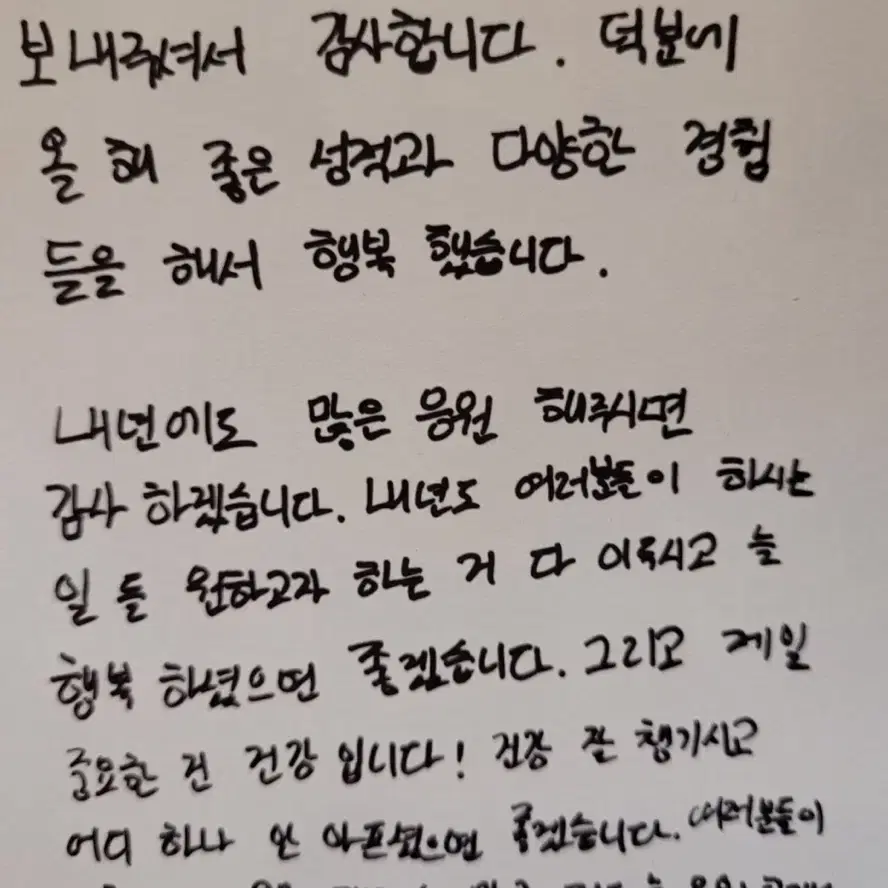 보내주셔서 감사합니다. 덕분에
올 해 좋은 성적과 다양한 경험
들을 해서 행복 했습니다.
내년에도 많은 응원 해주시면
감사 하겠습니다. 내년도 여러분들이 하시는
일 들 원하고자 하는 거 다 이루시고 늘
행복 하셨으면 좋겠습니다. 그리고 제일
중요한 건 건강 입니다! 건강 잘 챙기시고
어디 하나 안 아프셨으면 좋겠습니다. 여러분들이